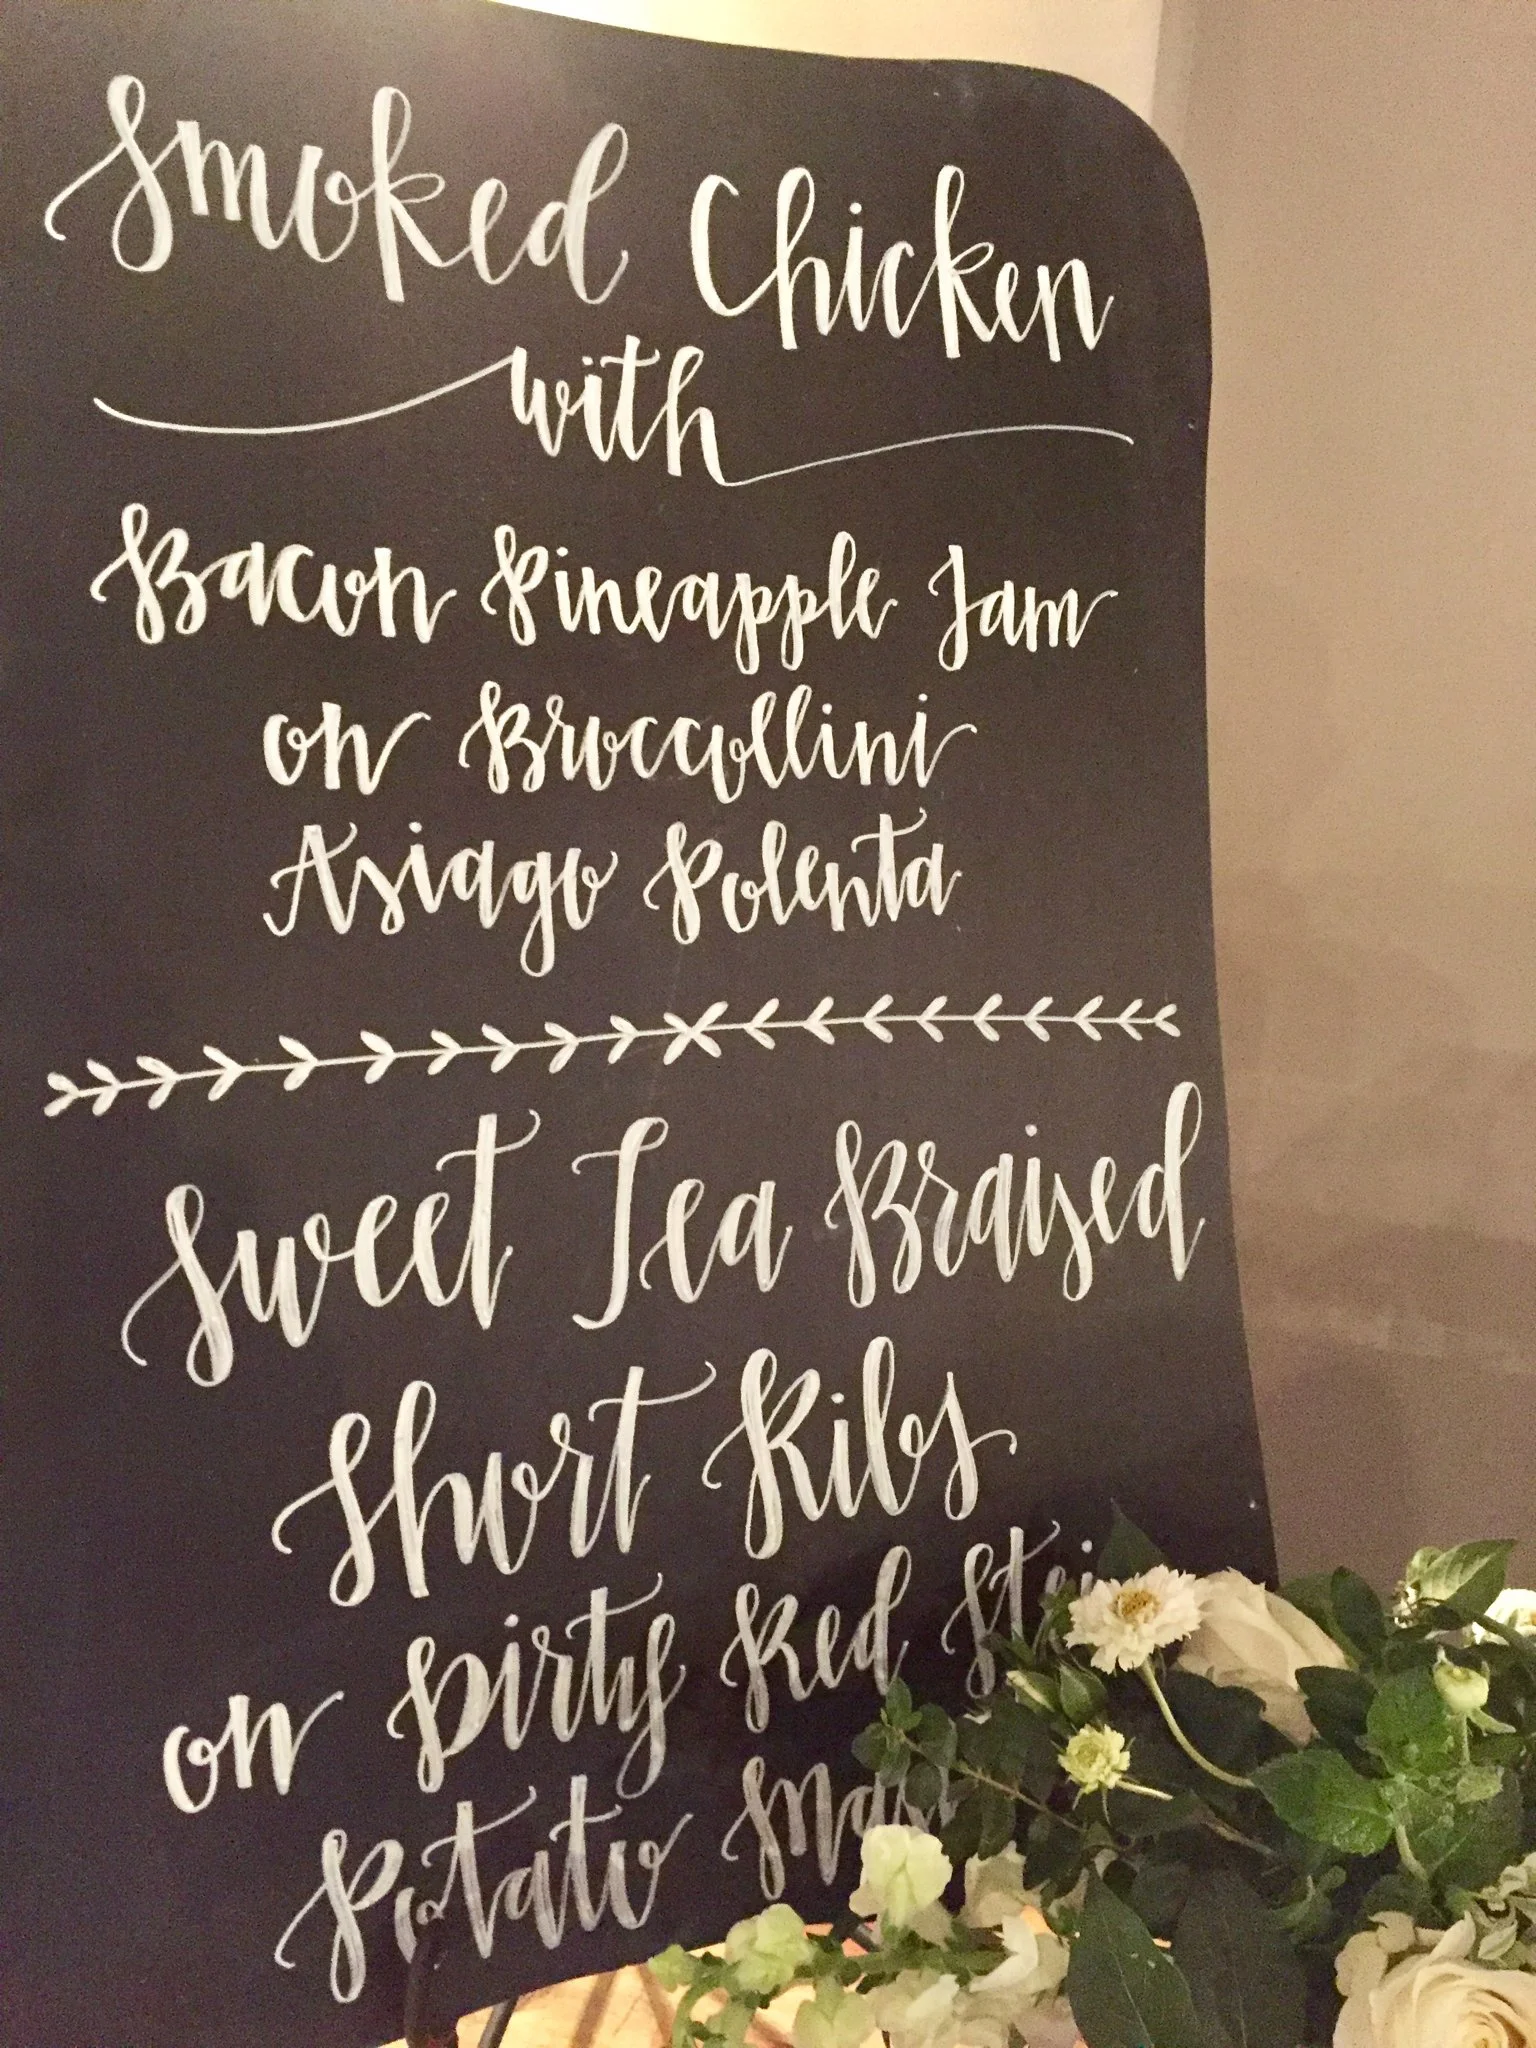 Smoked Chicken
with
Bacon Pineapple Jam
on Broccollini
Asiago Polenta
Sweet Tea Braised
Short Ribs
on Dirty Red
Potato